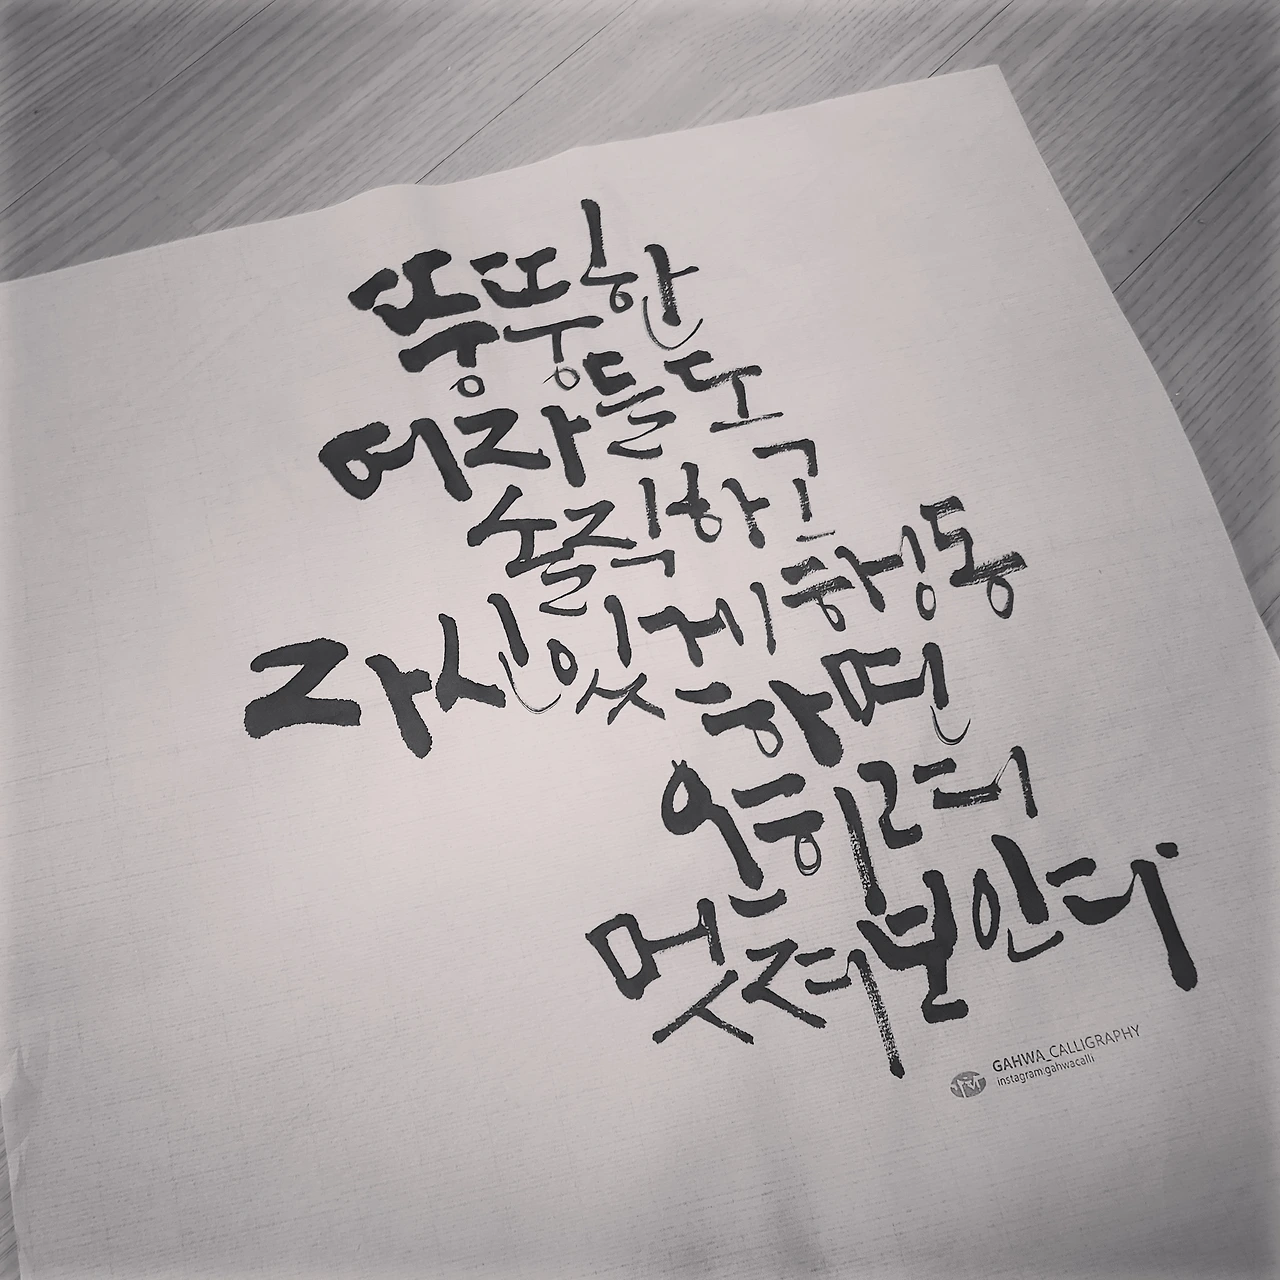 뚱뚱한
여자들도
솔직하고
자신있게 행동
하면
오히려
멋져 보인다
GAHWA_CALLIGRAPHY
instagram:gahwacalli